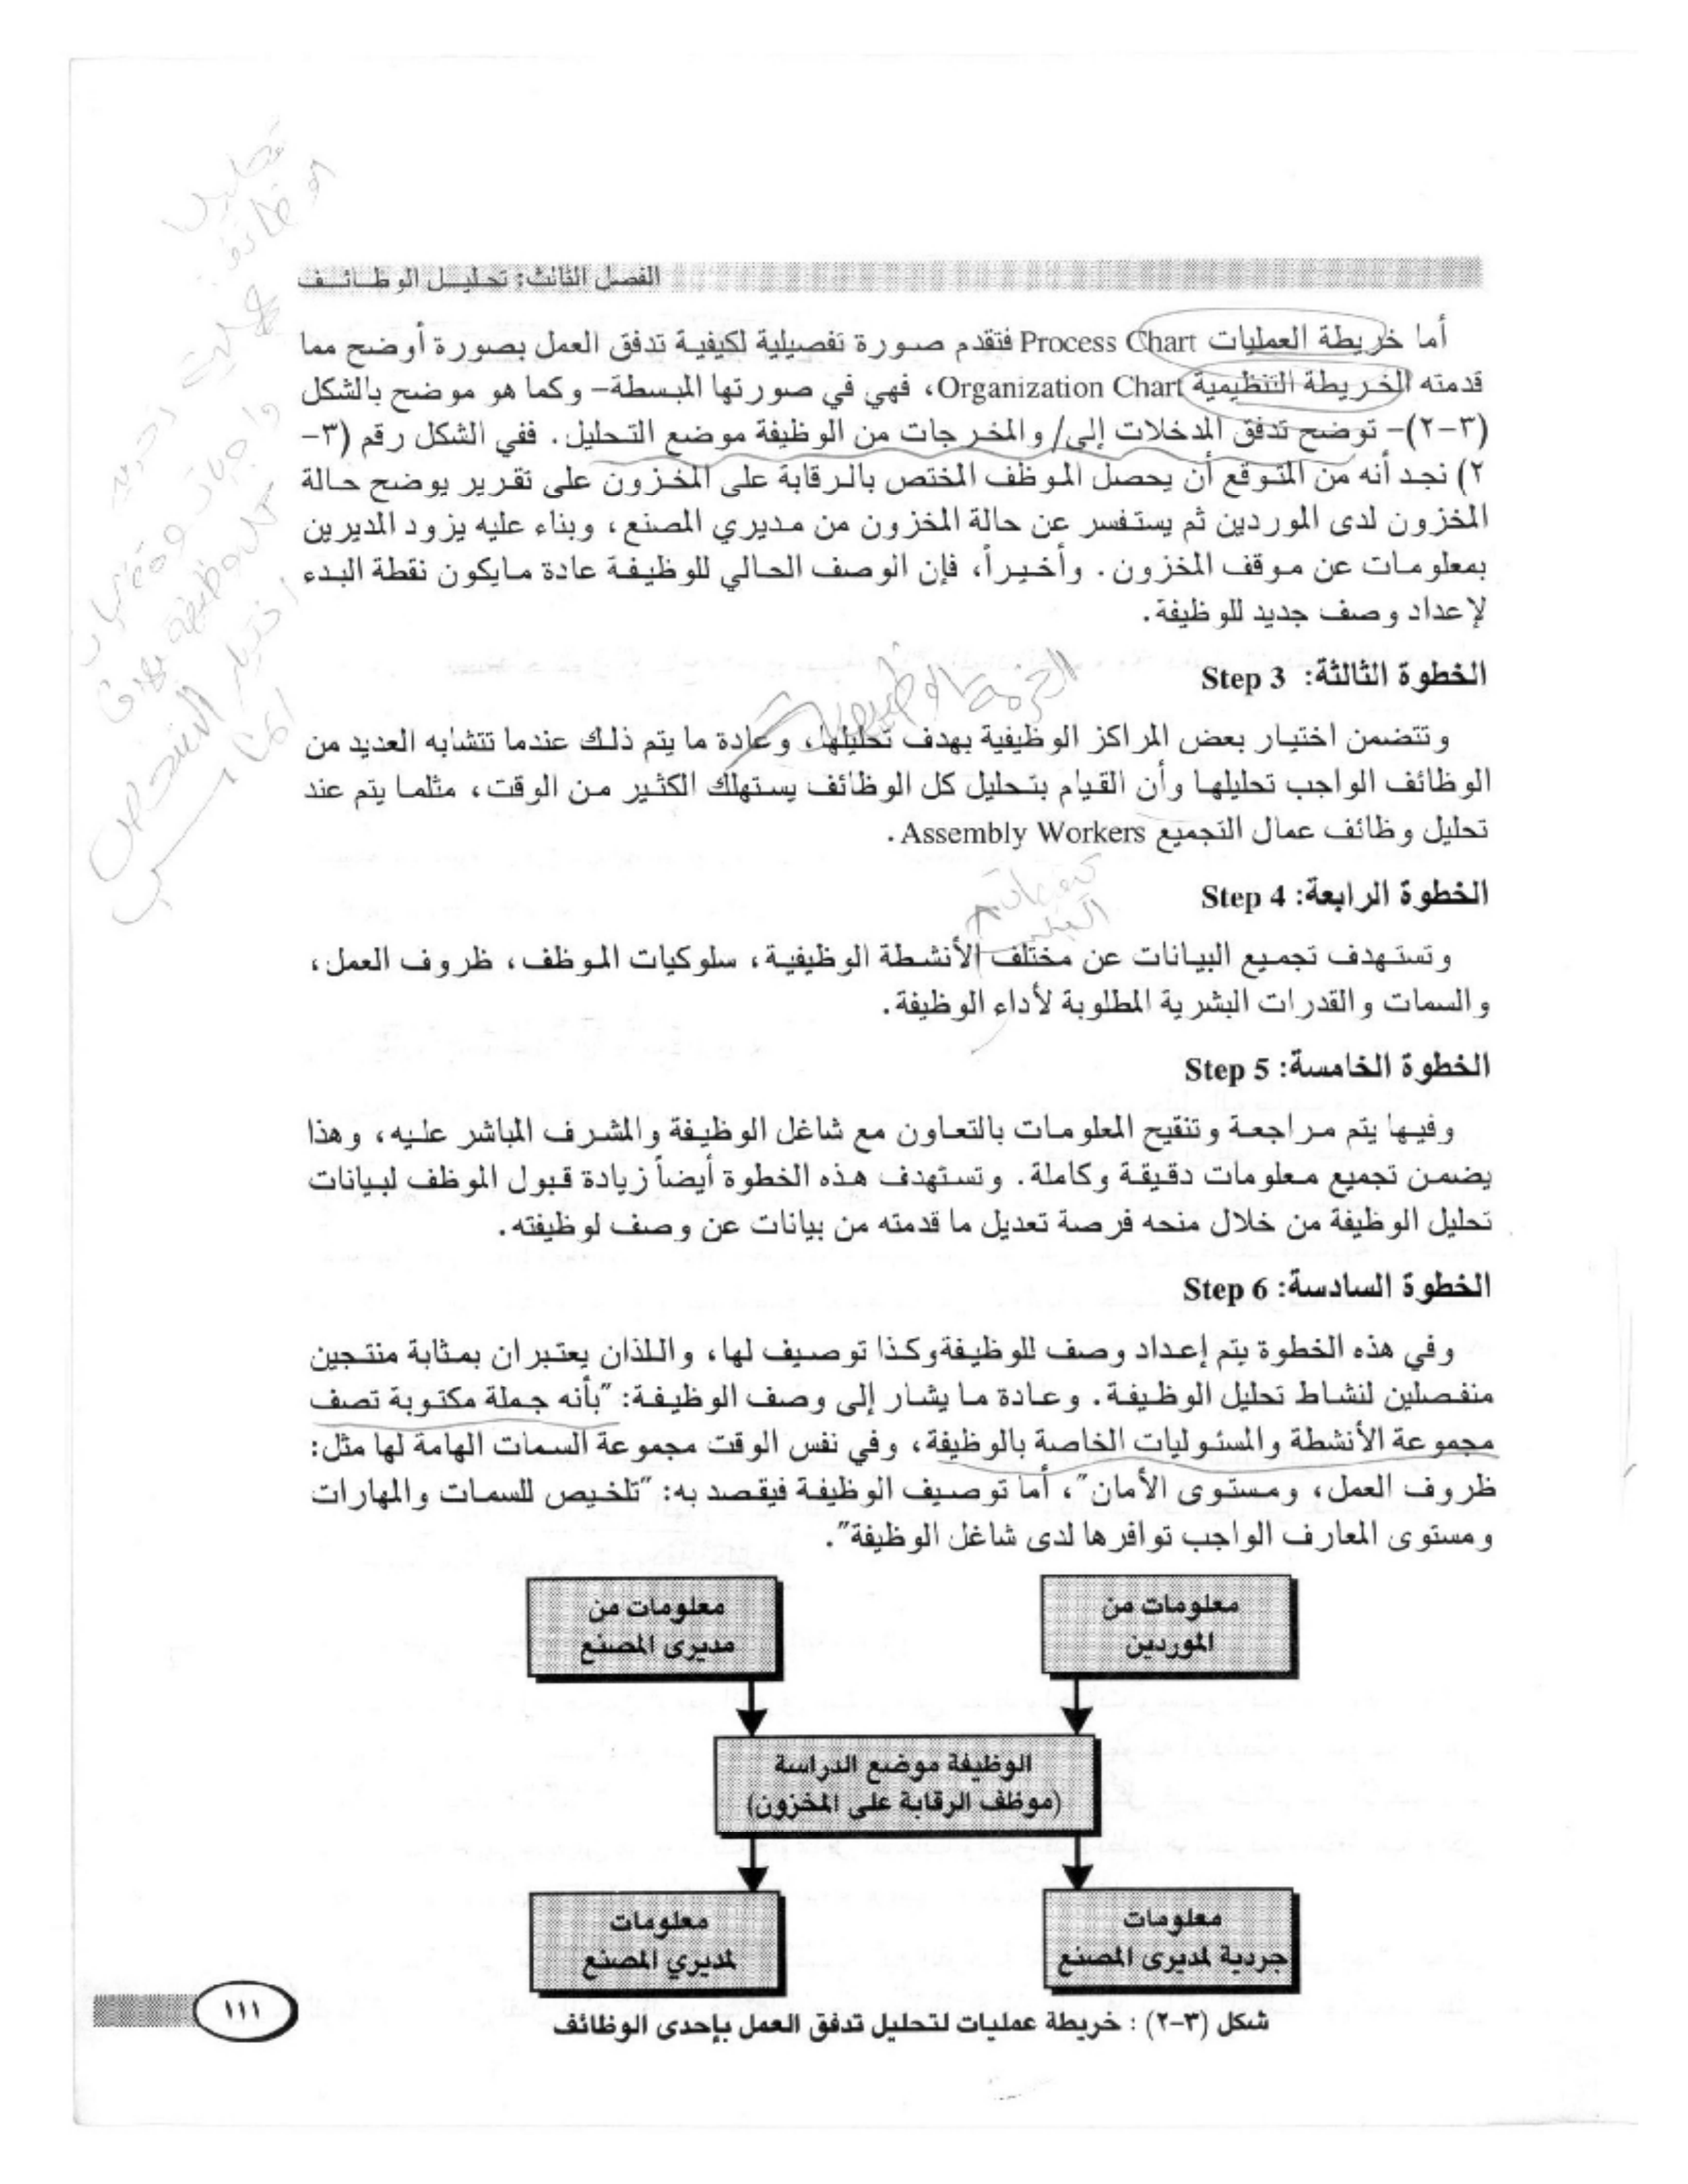 الفصل الثالث: تحليل الوظائف
أما خريطة العمليات Process Chart فتقدم صورة تفصيلية لكيفية تدفق العمل بصورة أوضح مما
قدمته الخريطة التنظيمية Organization Chart، فهي في صورتها المبسطة- وكما هو موضح بالشكل
(٣-٢)- توضح تدفق المدخلات إلى/ والمخرجات من الوظيفة موضع التحليل. ففي الشكل رقم (٣-
٢) نجد أنه من المتوقع أن يحصل الموظف المختص بالرقابة على المخزون على تقرير يوضح حالة
المخزون لدى الموردين ثم يستفسر عن حالة المخزون من مديري المصنع، وبناء عليه يزود المديرين
بمعلومات عن موقف المخزون. وأخيراً، فإن الوصف الحالي للوظيفة عادة مايكون نقطة البدء
لإعداد وصف جديد للوظيفة.
الخطوة الثالثة: Step 3
وتتضمن اختيار بعض المراكز الوظيفية بهدف تحليلها، وعادة ما يتم ذلك عندما تتشابه العديد من
الوظائف الواجب تحليلها وأن القيام بتحليل كل الوظائف يستهلك الكثير من الوقت، مثلما يتم عند
تحليل وظائف عمال التجميع Assembly Workers.
الخطوة الرابعة: Step 4
وتستهدف تجميع البيانات عن مختلف الأنشطة الوظيفية، سلوكيات الموظف، ظروف العمل،
والسمات والقدرات البشرية المطلوبة لأداء الوظيفة.
الخطوة الخامسة: Step 5
وفيها يتم مراجعة وتنقيح المعلومات بالتعاون مع شاغل الوظيفة والمشرف المباشر عليه، وهذا
يضمن تجميع معلومات دقيقة وكاملة. وتستهدف هذه الخطوة أيضاً زيادة قبول الموظف لبيانات
تحليل الوظيفة من خلال منحه فرصة تعديل ما قدمته من بيانات عن وصف لوظيفته.
الخطوة السادسة: Step 6
وفي هذه الخطوة يتم إعداد وصف للوظيفةوكذا توصيف لها، واللذان يعتبران بمثابة منتجين
منفصلين لنشاط تحليل الوظيفة. وعادة ما يشار إلى وصف الوظيفة: "بأنه جملة مكتوبة تصف
مجموعة الأنشطة والمسئوليات الخاصة بالوظيفة، وفي نفس الوقت مجموعة السمات الهامة لها مثل:
ظروف العمل، ومستوى الأمان"، أما توصيف الوظيفة فيقصد به: "تلخيص للسمات والمهارات
ومستوى المعارف الواجب توافرها لدى شاغل الوظيفة".
معلومات من
الموردين
معلومات من
مديرى المصنع
الوظيفة موضع الدراسة
(موظف الرقابة على المخزون)
معلومات
جردية لمديرى المصنع
معلومات
لمديري المصنع
شكل (٣-٢) : خريطة عمليات لتحليل تدفق العمل بإحدى الوظائف
١١١
تحليل
الوظائف
عملية تحديد
واجبات
كل وظيفة بهدف
اختيار الشخص